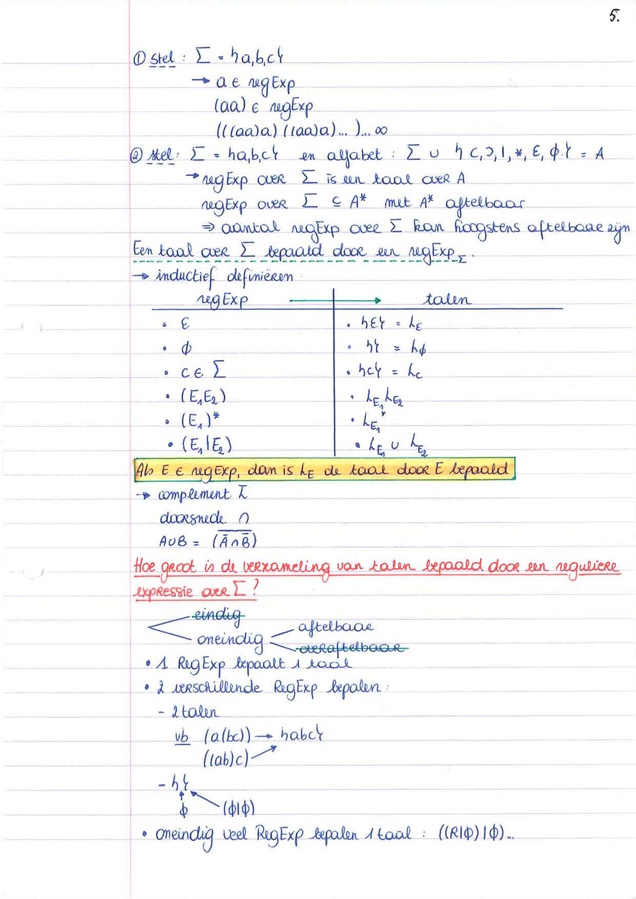 5.
① stel : Σ = {a,b,c}
→ a ∈ regExp
(aa) ∈ regExp
(((aa)a)((aa)a)...)...∞
② stel : Σ = {a,b,c} en alfabet : Σ ∪ {(,),|,*,ε,φ} = A
→ regExp over Σ is een taal over A
regExp over Σ ⊆ A* met A* aftelbaar
⇒ aantal regExp over Σ kan hoogstens aftelbaar zijn
Een taal over Σ bepaald door een regExp_Σ.
→ inductief definiëren :
regExp → talen
• ε • {ε} = L_ε
• φ • {} = L_φ
• c ∈ Σ • {c} = L_c
• (E₁E₂) • L_E₁ L_E₂
• (E₁)* • L_E₁*
• (E₁|E₂) • L_E₁ ∪ L_E₂
Als E ∈ regExp, dan is L_E de taal door E bepaald
→ complement L̅
doorsnede ∩
A∪B = (A̅ ∩ B̅)̅
Hoe groot is de verzameling van talen bepaald door een reguliere
expressie over Σ ?
eindig
aftelbaar
oneindig
overaftelbaar
• 1 RegExp bepaalt 1 taal
• 2 verschillende RegExp bepalen :
- 2 talen
vb (a(bc)) → {abc}
((ab)c)
- {}
φ (φ|φ)
• oneindig veel RegExp bepalen 1 taal : ((R|φ)|φ)...